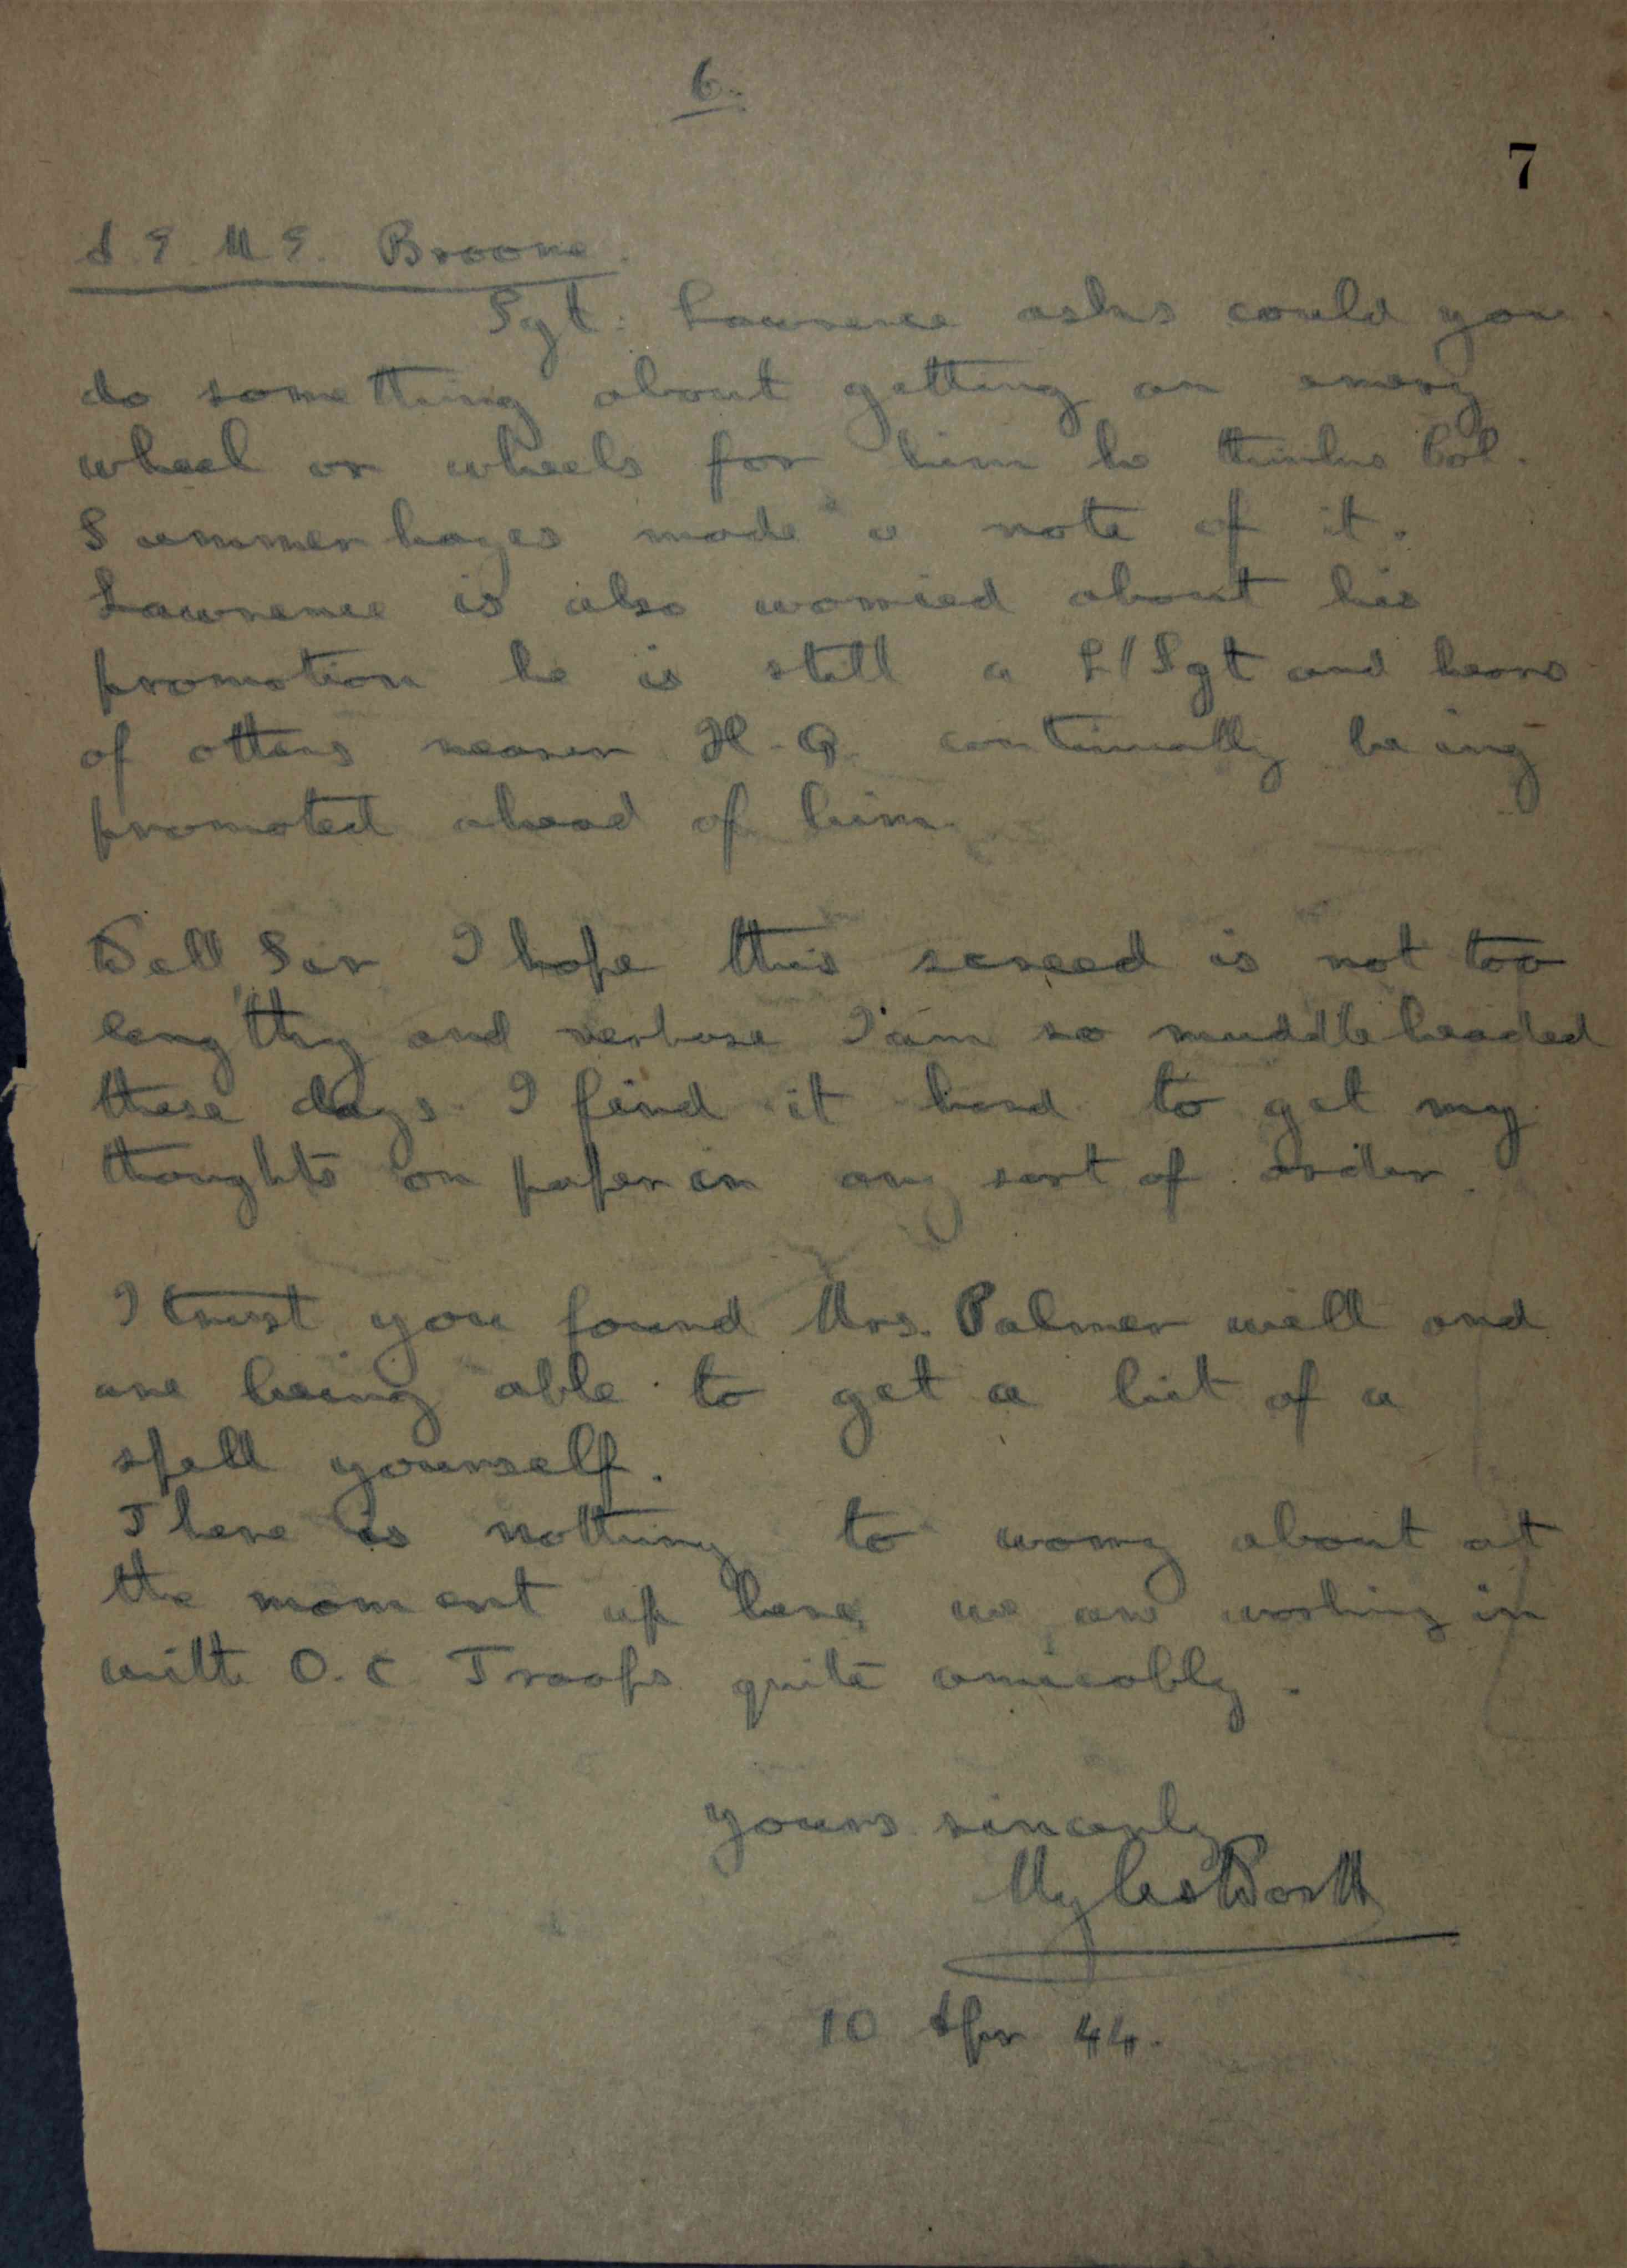 6.
7
A.E.M.E. Broome.
Sgt. Lawrence asks could you
do something about getting an emery
wheel or wheels for him he thinks Col.
Summerhayes made a note of it.
Lawrence is also worried about his
promotion he is still a L/Sgt and hears
of others nearer H.Q. continually being
promoted ahead of him.
Well Sir I hope this screed is not too
lengthy and verbose I am so muddleheaded
these days I find it hard to get my
thoughts on paper in any sort of order.
I trust you found Mrs. Palmer well and
are being able to get a bit of a
spell yourself.
There is nothing to worry about at
the moment up here, we are working in
with O.C Troops quite amicably.
yours sincerly
Myles
10 Apr 44.